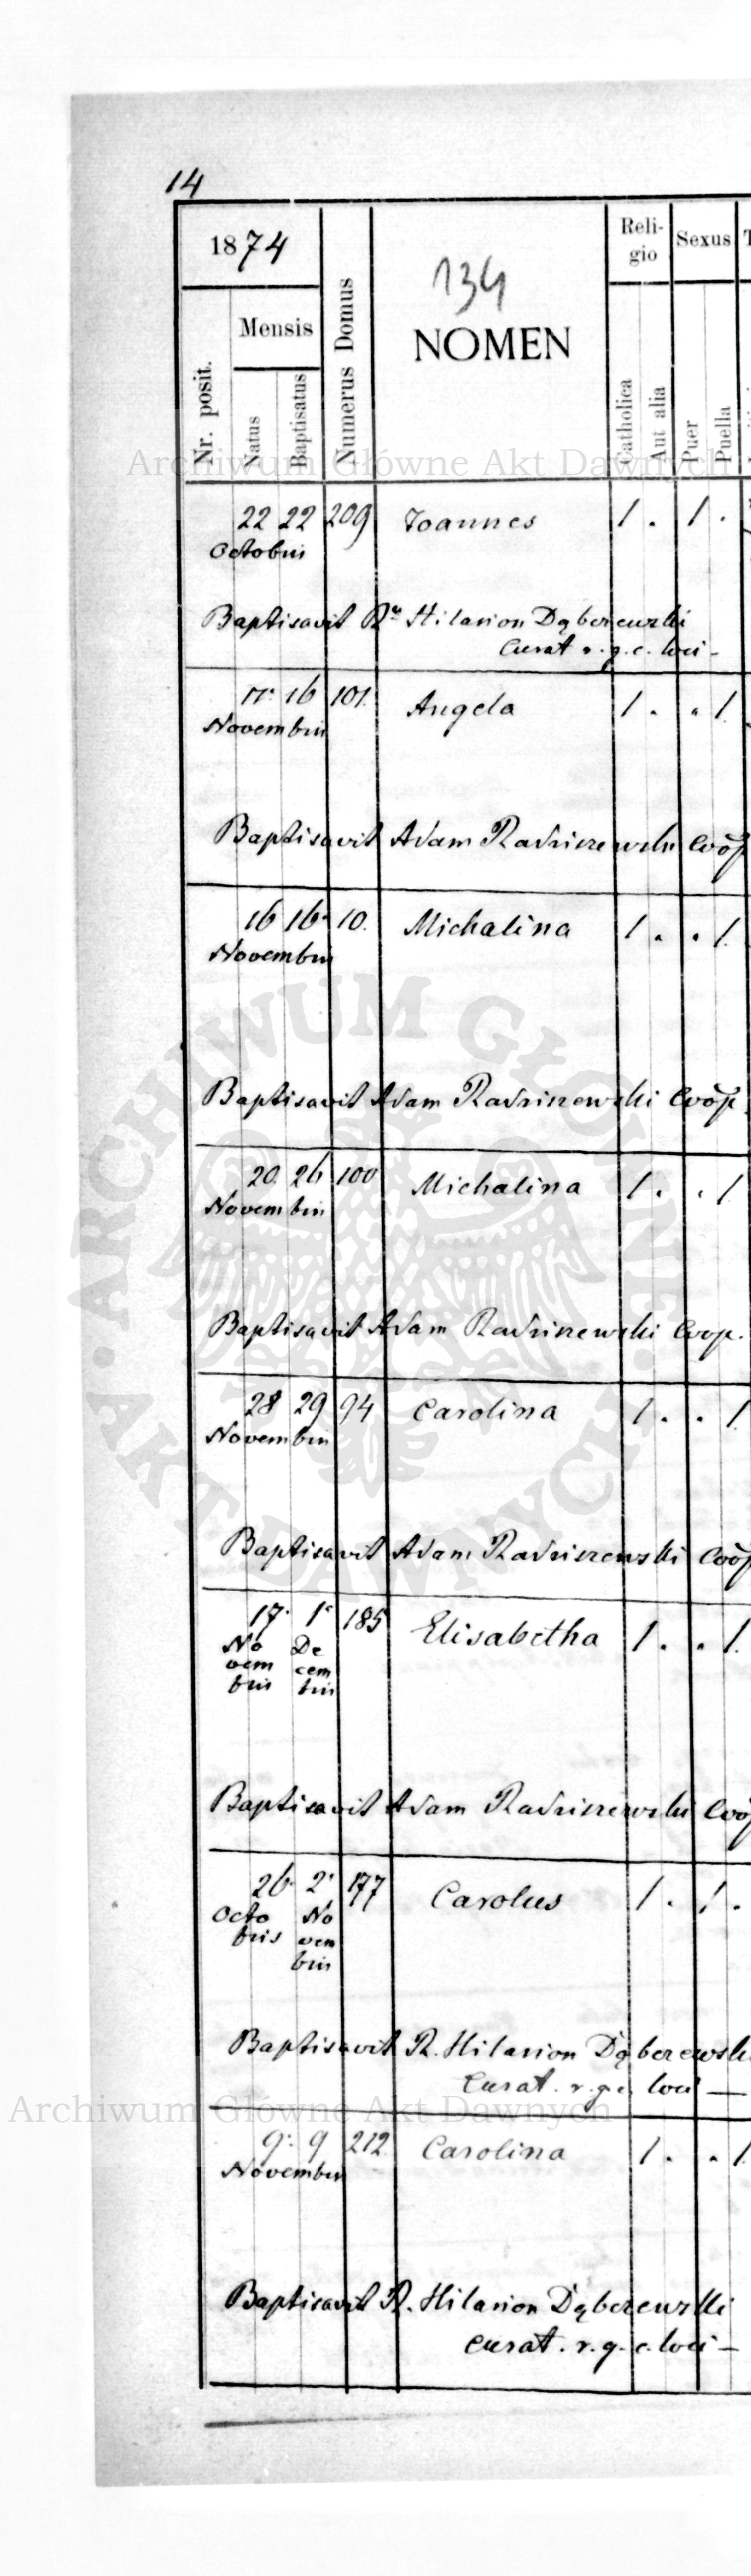 14
1874
134
Nr. posit.
Mensis
Natus
Baptisatus
Numerus Domus
NOMEN
Reli-
gio
Catholica
Aut alia
Sexus
Puer
Puella
Archiwum Główne Akt Dawnych
22 22 209 Joannes 1 . 1 .
Octobris
Baptisavit Hilarion Dąberewski
Curat r. g. c. loci -
16 101. Angela 1 . . 1.
Novembris
Baptisavit Adam Radziszewski Coop
16 16 10. Michalina 1 . . 1.
Novembris
Baptisavit Adam Radziszewski Coop.
20. 26 100 Michalina 1 . . 1.
Novembris
Baptisavit Adam Radziszewski Coop.
28 29 94 Carolina 1 . . 1.
Novembris
Baptisavit Adam Radziszewski Coop
17. 1. 185 Elisabetha 1 . . 1.
No De
vem cem
bris bris
Baptisavit Adam Radziszewski Coop
26. 2. 177 Carolus 1 . 1 .
Octo No
bris vem
bris
Baptisavit R. Hilarion Dąberewski
Curat. r. g. c. loci —
Archiwum Główne Akt Dawnych
9. 9 212. Carolina 1 . . 1.
Novembris
Baptisavit R. Hilarion Dąberewski
Curat. r. g. c. loci -
ARCHIWUM GŁÓWNE
AKT DAWNYCH